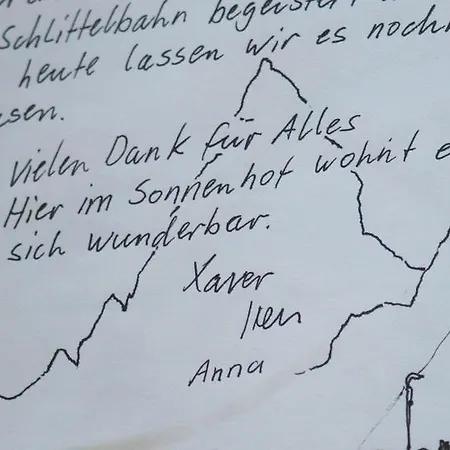 Schlittelbahn begeistert
heute lassen wir es noch
sen.
Vielen Dank für Alles
Hier im Sonnenhof wohnt e
sich wunderbar.
Xaver
Iren
Anna